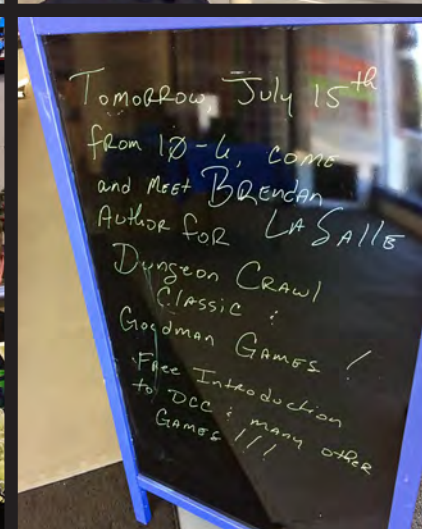 Tomorrow, July 15th
from 10-6, come
and meet Brendan
Author for LaSalle
Dungeon Crawl
Classic &
Goodman Games!
Free Introduction
to DCC & many other
Games!!!